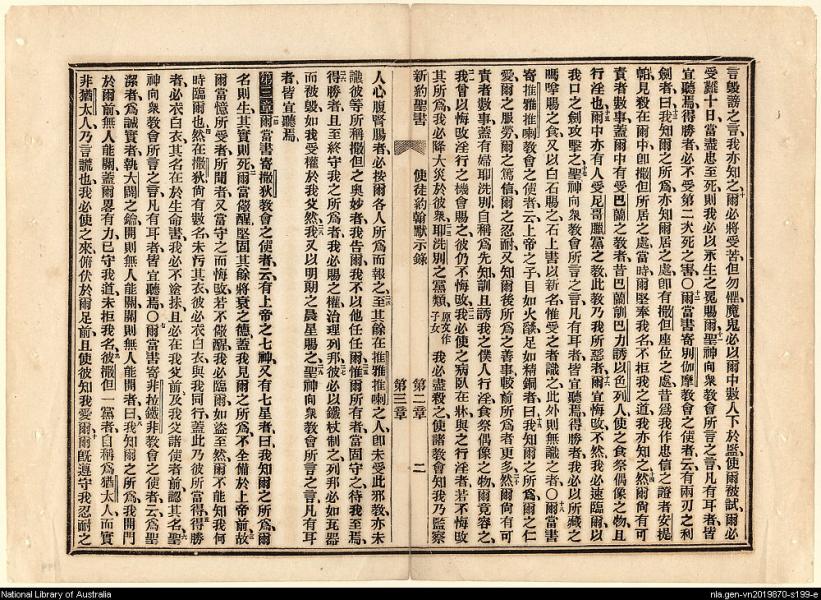 言毀謗之言、我亦知之、爾必將受苦但勿懼、魔鬼必以爾中數人下於監、使爾被試、爾必
受難十日、當盡忠至死、則我必以永生之冕賜爾、聖神向衆教會所言之言、凡有耳者皆
宜聽焉、得勝者必不受第二次死之害、○爾當書寄別伽摩教會之使者、云有兩刃之利
劍者曰、我知爾之所爲、亦知爾居之處、即有撒但座位之處、昔爲我作忠信之證者安提
帕見殺在爾中、即撒但所居之處、當時爾堅奉我名、不柜我之道、我亦知之、然爾尚有可
責者數事、蓋爾中有受巴蘭之教者、昔巴蘭訓巴力、誘以色列人、使之食祭偶像之物、且
行淫也、爾中亦有人受尼哥臘黨之教、此教乃我所惡者、爾宜悔改、不然、我必速臨爾、以
我口之劍攻擊之、聖神向衆教會所言之言、凡有耳者、皆宜聽焉、得勝者、我必以所藏之
嗎嗱賜之食、又以白石賜之、石上書以新名、惟受之者識之、此外則無識之者、○爾當書
寄推雅推喇教會之使者、云上帝之子、目如火燄、足如精銅者曰、我知爾之所爲、爾之仁
愛、爾之服勞、爾之篤信、爾之忍耐、又知爾後所爲之善事、較前所爲者更多、然爾尚有可
責者數事、蓋有婦耶洗別、自稱爲先知、訓且誘我之僕人行淫、食祭偶像之物、爾竟容之、
我曾以悔改淫行之機會賜之、彼仍不悔改、我必使之病臥在牀、與之行淫者、若不悔改
其所爲、我必降大災於彼衆、耶洗別之黨類、原文作子女 我必盡殺之、使諸教會知我乃監察
新約聖書 使徒約翰默示錄 第二章 第三章 二
人心腹腎腸者、必按爾各人所爲而報之、至其餘在推雅推喇之人、即未受此邪教、亦未
識彼等所稱撒但之奥妙者、我告爾、我不以他任任爾、惟爾所有者、當固守之、待我至焉、
得勝者、且至終守我之所爲者、我必賜之權治理列邦、彼必以鐵杖制之、列邦必如瓦器
而被毀、如我受權於我父然、我又以明朗之晨星賜之、聖神向衆教會所言之言、凡有耳
者、皆宜聽焉、
第三章 爾當書寄撒狄教會之使者、云有上帝之七神、又有七星者曰、我知爾之所爲、爾
名則生、其實則死、爾當儆醒、堅固其餘將衰之德、蓋我見爾之所爲、不全備於上帝前、故
爾當憶所受者所聞者、又當守之而悔改、若不儆醒、我必臨爾、如盜至然、爾不能知我何
時臨爾也、然在撒狄尚有數名、未污其衣、彼必衣白衣、與我同行、蓋此乃彼所當得、得勝
者必衣白衣、其名在於生命書、我必不塗抹、且必在我父前、及我父諸使者前、認其名、聖
神向衆教會所言之言、凡有耳者、皆宜聽焉、○爾當書寄非拉鐵非教會之使者、云爲聖
潔者、爲誠實者、執大闢之鑰、開則無人能關、關則無人能開者曰、我知爾之所爲、我開門
於爾前、無人能關、蓋爾畧有力、已守我道、未柜我名、彼撒但一黨者、自稱爲猶太人、而實
非猶太人、乃言謊也、我必使之來俯伏於爾足前、且使彼知我愛爾、爾旣遵守我忍耐之
National Library of Australia
nla.gen-vn2019870-s199-e